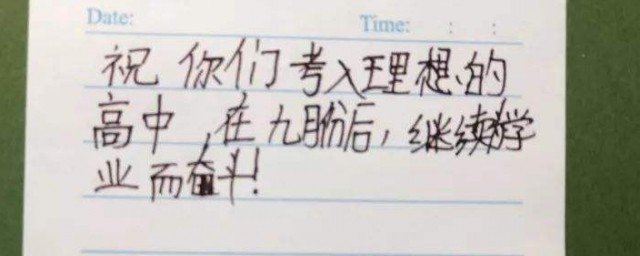 Date: Time: : :
祝你们考入理想的
高中,在九月份后,继续为学
业而奋斗!